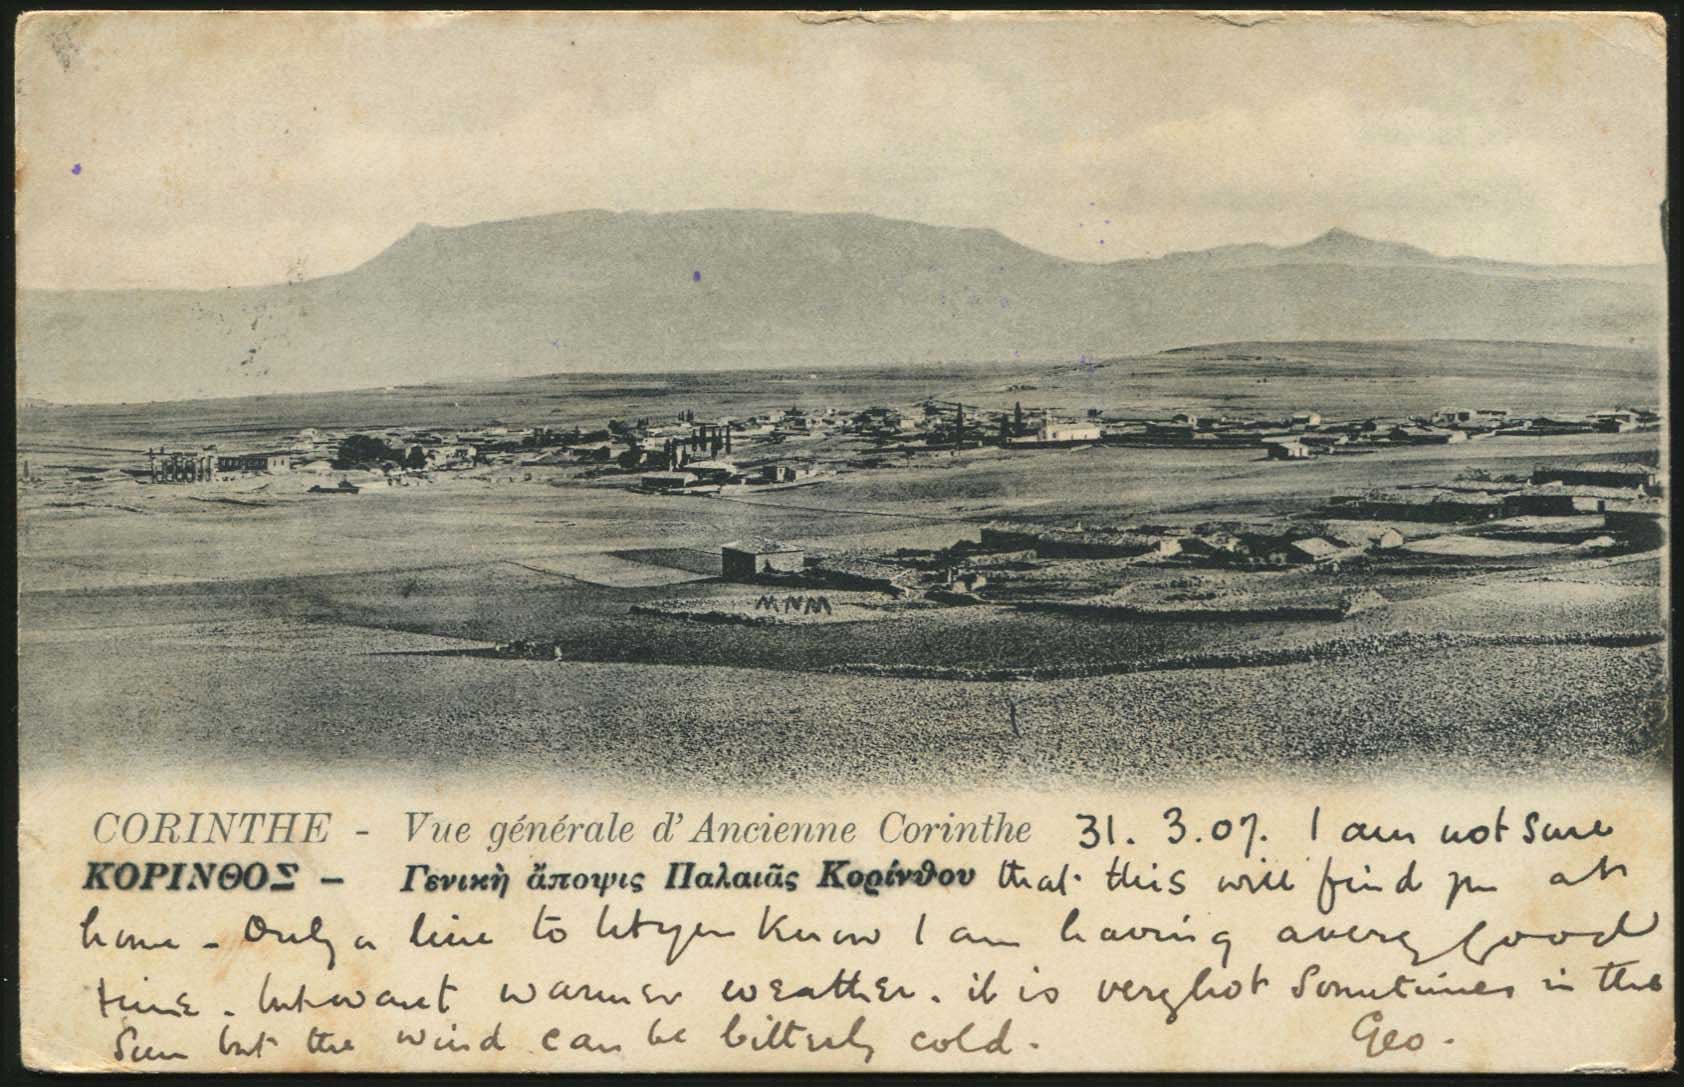 MNM
CORINTHE - Vue générale d'Ancienne Corinthe 31. 3. 07. I am not sure
ΚΟΡΙΝΘΟΣ – Γενικὴ ἄποψις Παλαιᾶς Κορίνθου that this will find you at
home - Only a line to let you know I am having a very good
time. but want warmer weather. it is very hot sometimes in the
sun but the wind can be bitterly cold. Geo.